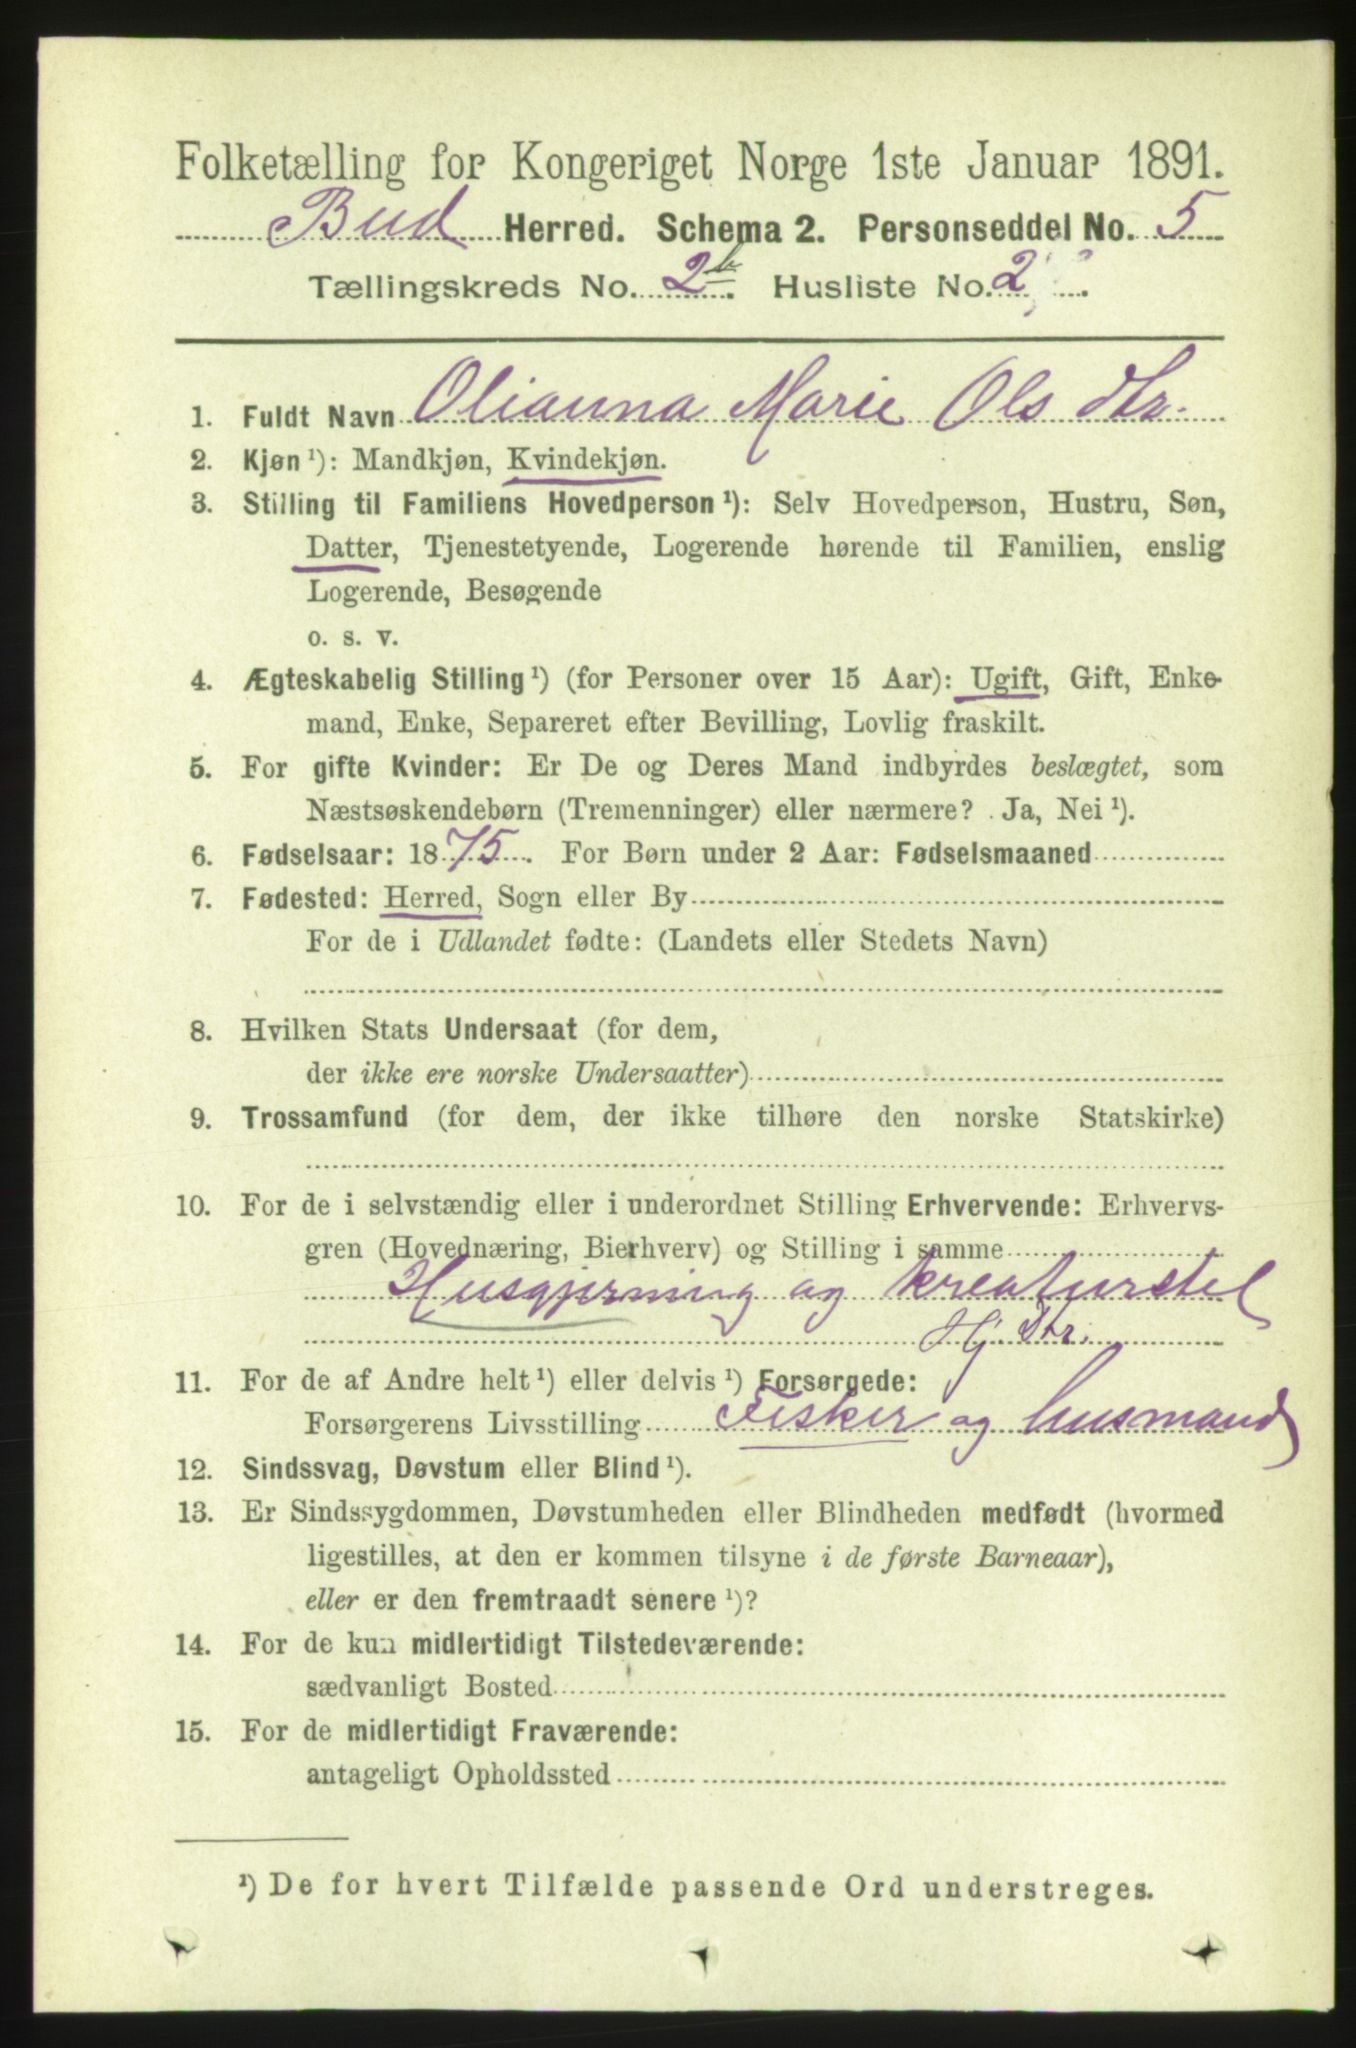 Folketælling for Kongeriget Norge 1ste Januar 1891.
Bud Herred. Schema 2. Personseddel No. 5
Tællingskreds No. 2b. Husliste No. 2
1. Fuldt Navn Olianna Marie Ols dtr.
2. Kjøn ¹): Mandkjøn, Kvindekjøn.
3. Stilling til Familiens Hovedperson ¹): Selv Hovedperson, Hustru, Søn,
Datter, Tjenestetyende, Logerende hørende til Familien, enslig
Logerende, Besøgende
o. s. v.
4. Ægteskabelig Stilling ¹) (for Personer over 15 Aar): Ugift, Gift, Enke-
mand, Enke, Separeret efter Bevilling, Lovlig fraskilt.
5. For gifte Kvinder: Er De og Deres Mand indbyrdes beslægtet, som
Næstsøskendebørn (Tremenninger) eller nærmere? Ja, Nei ¹).
6. Fødselsaar: 1875. For Børn under 2 Aar: Fødselsmaaned
7. Fødested: Herred, Sogn eller By
For de i Udlandet fødte: (Landets eller Stedets Navn)
8. Hvilken Stats Undersaat (for dem,
der ikke ere norske Undersaatter)
9. Trossamfund (for dem, der ikke tilhøre den norske Statskirke)
10. For de i selvstændig eller i underordnet Stilling Erhvervende: Erhvervs-
gren (Hovednæring, Bierhverv) og Stilling i samme
Husgjerning og kreaturstel
Hj. Dtr.
11. For de af Andre helt ¹) eller delvis ¹) Forsørgede:
Forsørgerens Livsstilling Fisker og husmand
12. Sindssvag, Døvstum eller Blind ¹).
13. Er Sindssygdommen, Døvstumheden eller Blindheden medfødt (hvormed
ligestilles, at den er kommen tilsyne i de første Barneaar),
eller er den fremtraadt senere ¹)?
14. For de kun midlertidigt Tilstedeværende:
sædvanligt Bosted
15. For de midlertidigt Fraværende:
antageligt Opholdssted
¹) De for hvert Tilfælde passende Ord understreges.